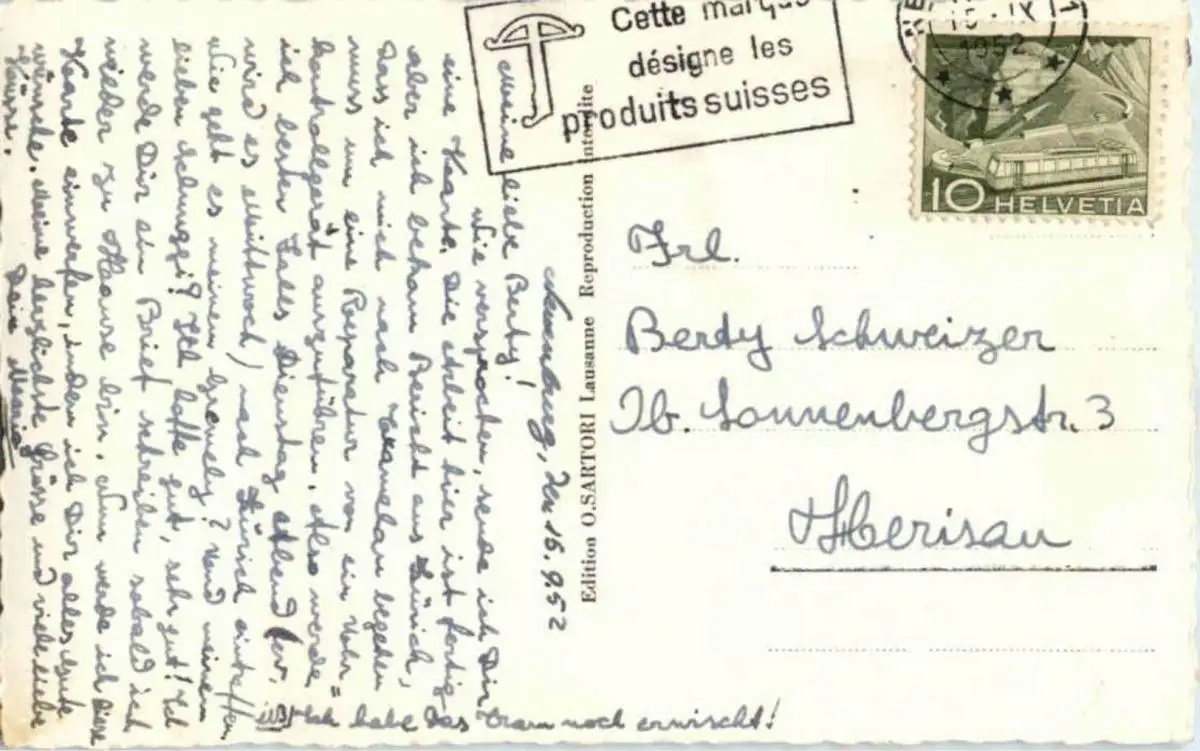 Cette marque
désigne les
produits suisses
1952
10 HELVETIA
Edition O. SARTORI Lausanne Reproduction interdite
Neuenburg, den 16.9.52
Meine liebe Berty!
Wie versprochen, sende ich Dir
eine Karte. Die Arbeit hier ist fertig
aber ich bekam Bericht aus Zürich,
dass ich mich nach begeben
muss um eine Reparatur von ein Rohr=
kontrollgerät auszuführen. Also werde
ich besten Falls Dienstag Abend (ev.
wird es Mittwoch) nach Zürich eintreffen.
Wie geht es meinem ? Und meinem
lieben Schnuggi? Ich hoffe gut, sehr gut! Ich
werde Dir ein Brief schreiben sobald ich
wieder zu Hause bin. Nun werde ich diese
Karte einwerfen, indem ich Dir alles Gute
wünsche. Meine herzlichste Grüsse und viele liebe
Küsse.
Dein
Ich habe das Tram noch erwischt!
Frl.
Berty Schweizer
Ib. Sonnenbergstr. 3
Herisau